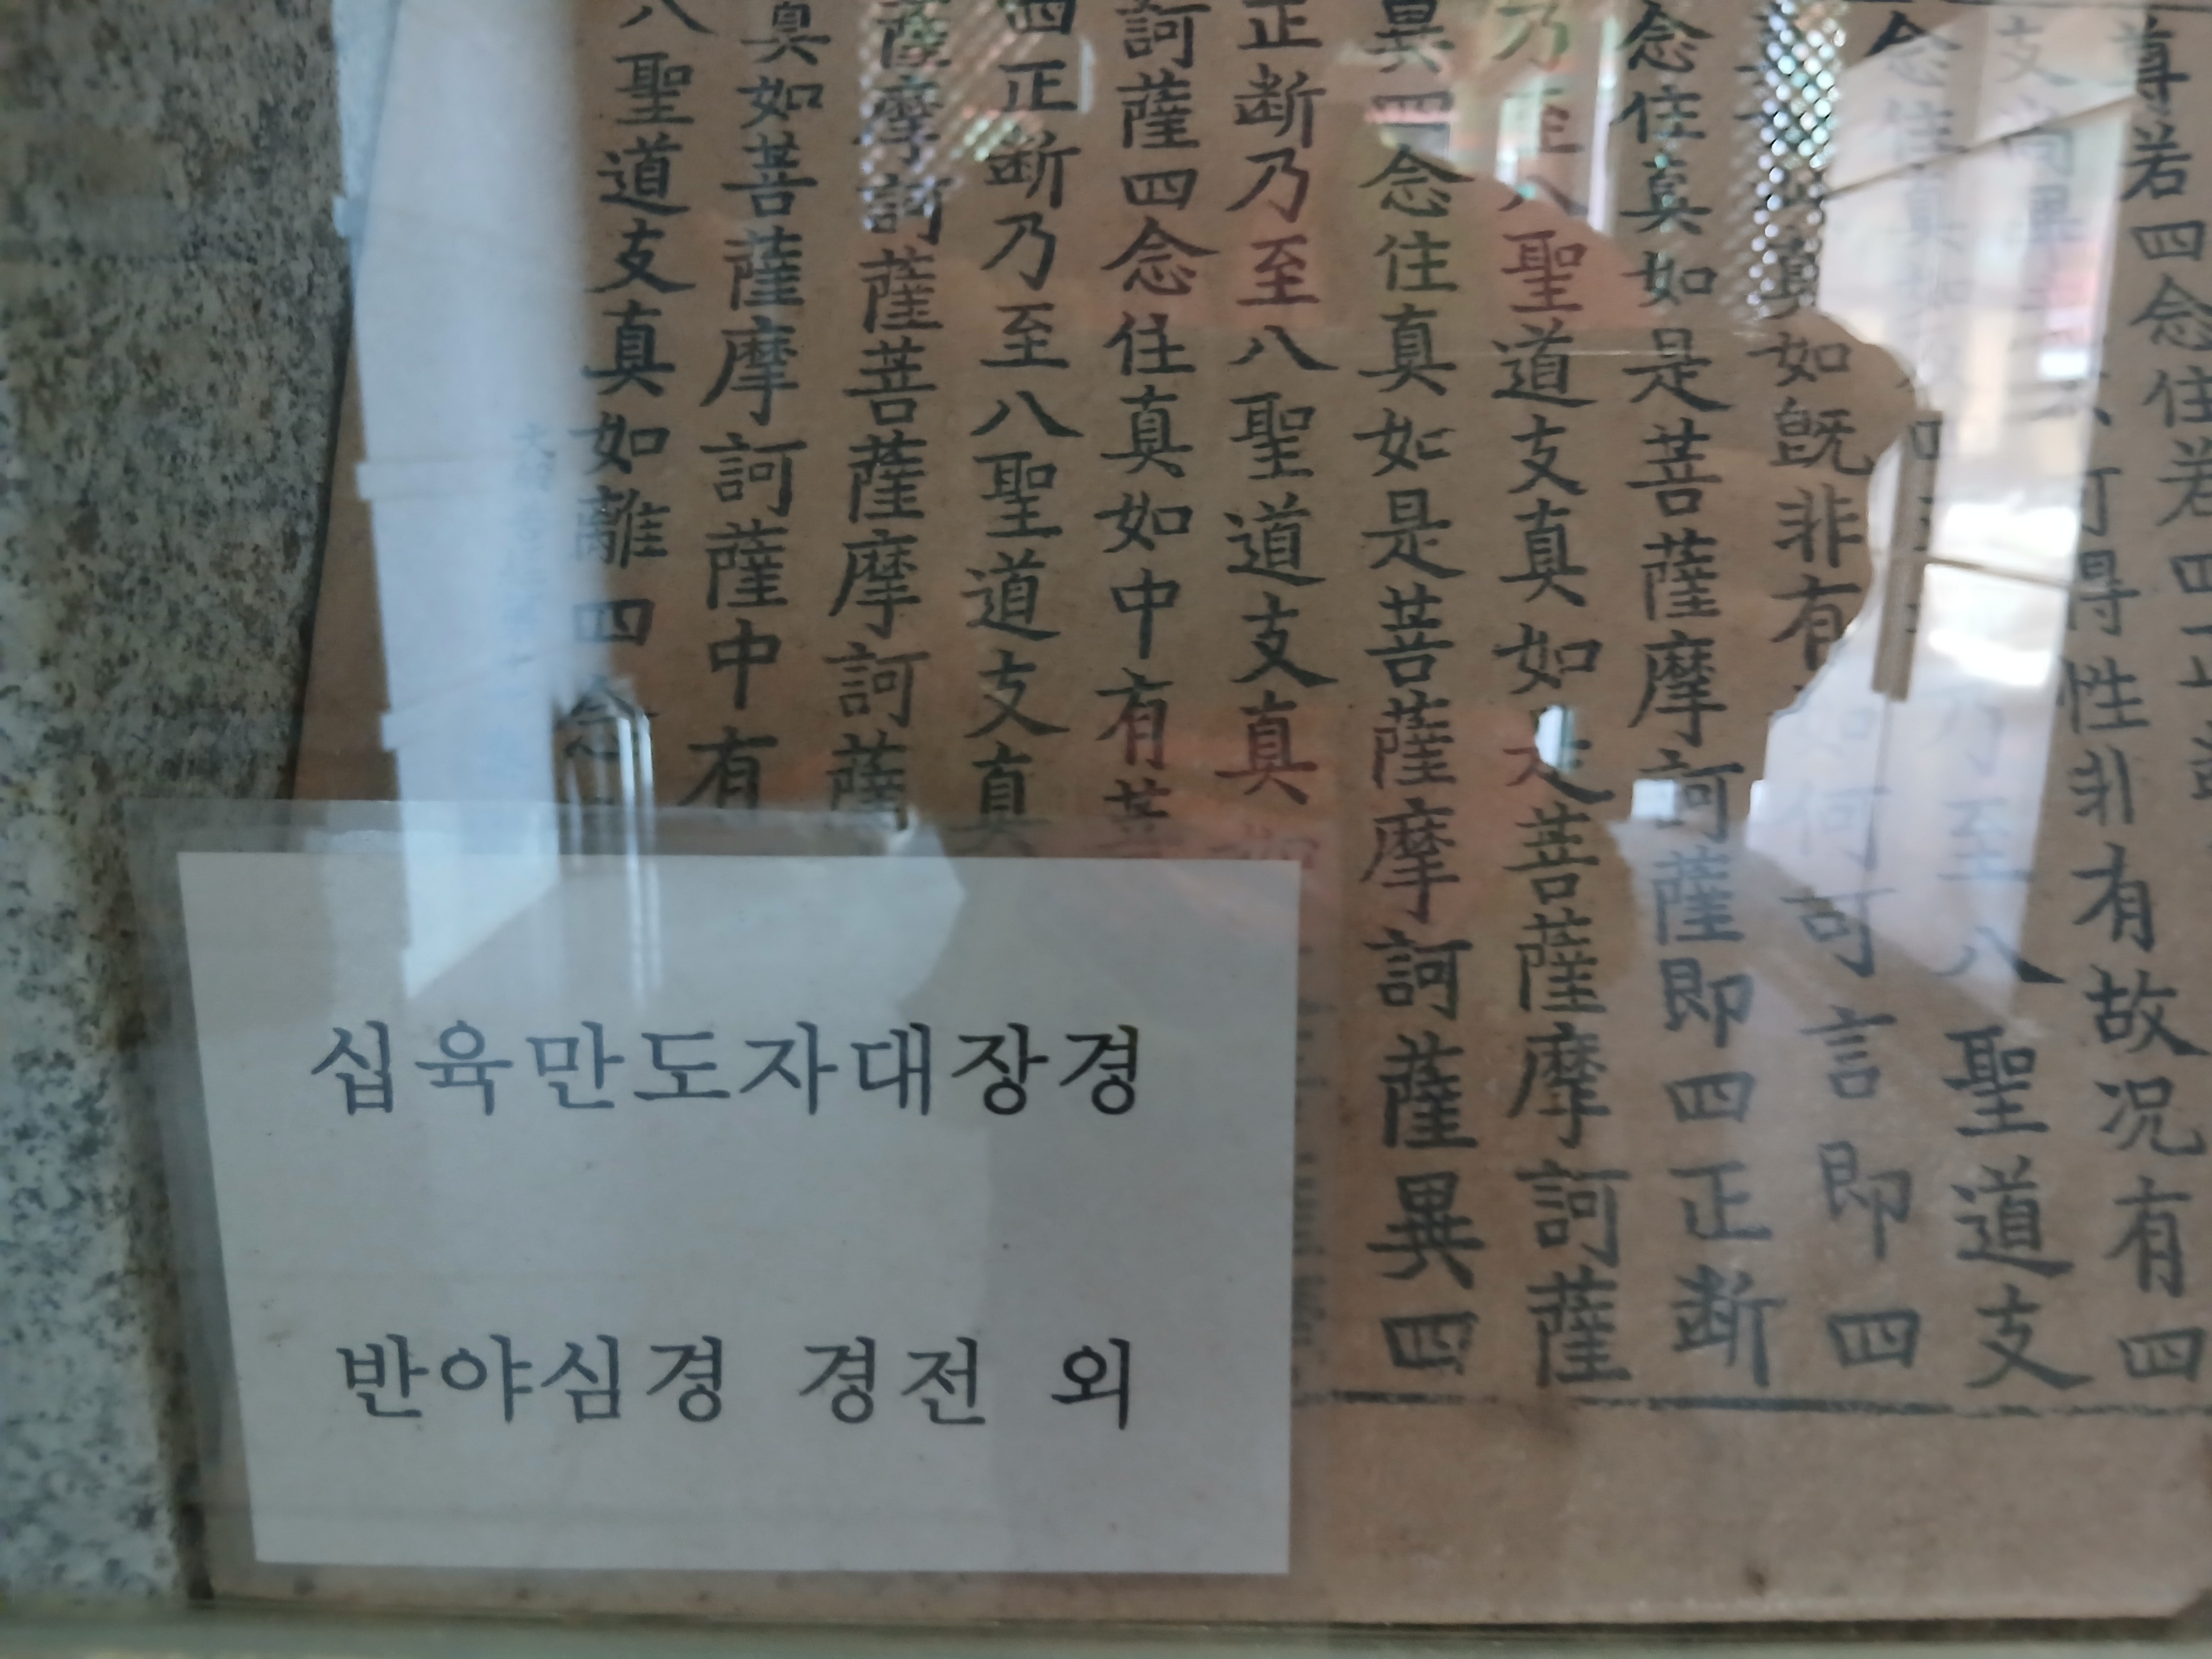 尊若四念住若四正
可得性非有故況有四
乃至八聖道支
真如既非有如何可言即四
念住真如是菩薩摩訶薩即四正斷
乃至八聖道支真如是菩薩摩訶薩
異四念住真如是菩薩摩訶薩異四
正斷乃至八聖道支真如
訶薩四念住真如中有菩
四正斷乃至八聖道支真
薩摩訶薩菩薩摩訶薩
真如菩薩摩訶薩中有
八聖道支真如離四念
십육만도자대장경
반야심경 경전 외